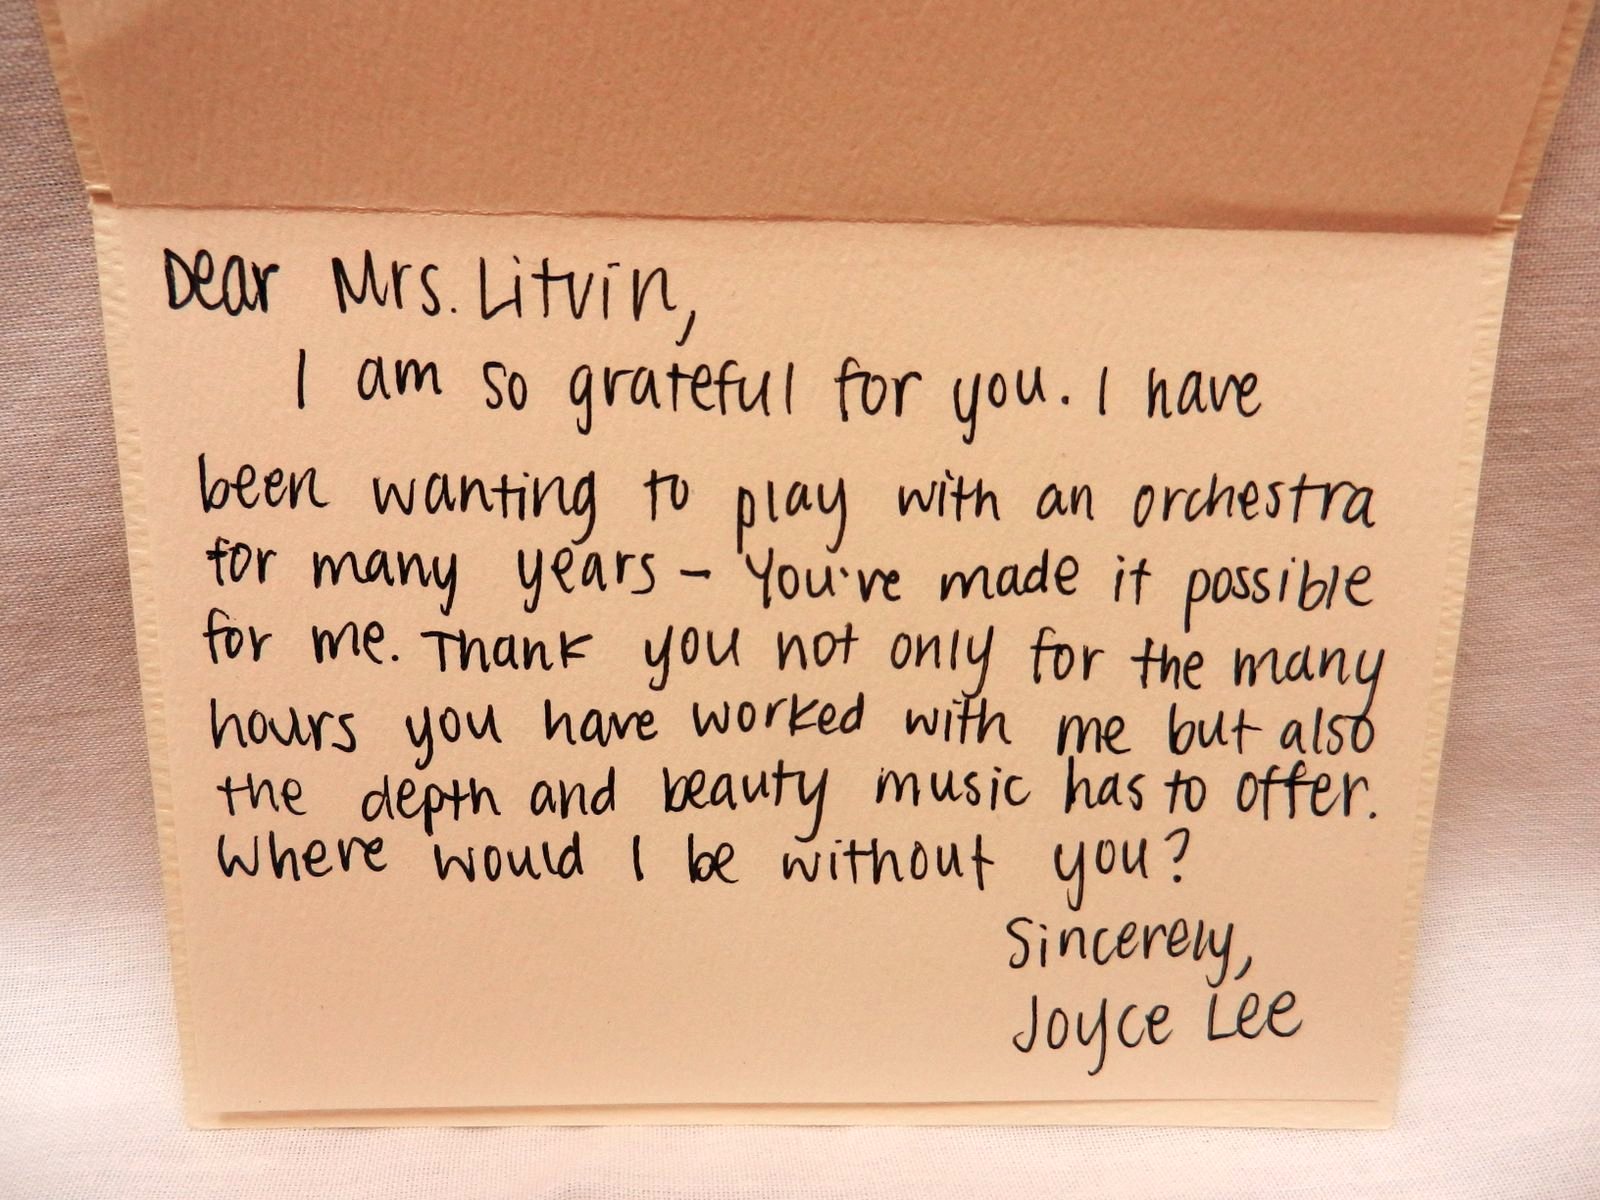 Dear Mrs. Litvin,
I am so grateful for you. I have
been wanting to play with an orchestra
for many years – You've made it possible
for me. Thank you not only for the many
hours you have worked with me but also
the depth and beauty music has to offer.
Where would I be without you?
Sincerely,
Joyce Lee